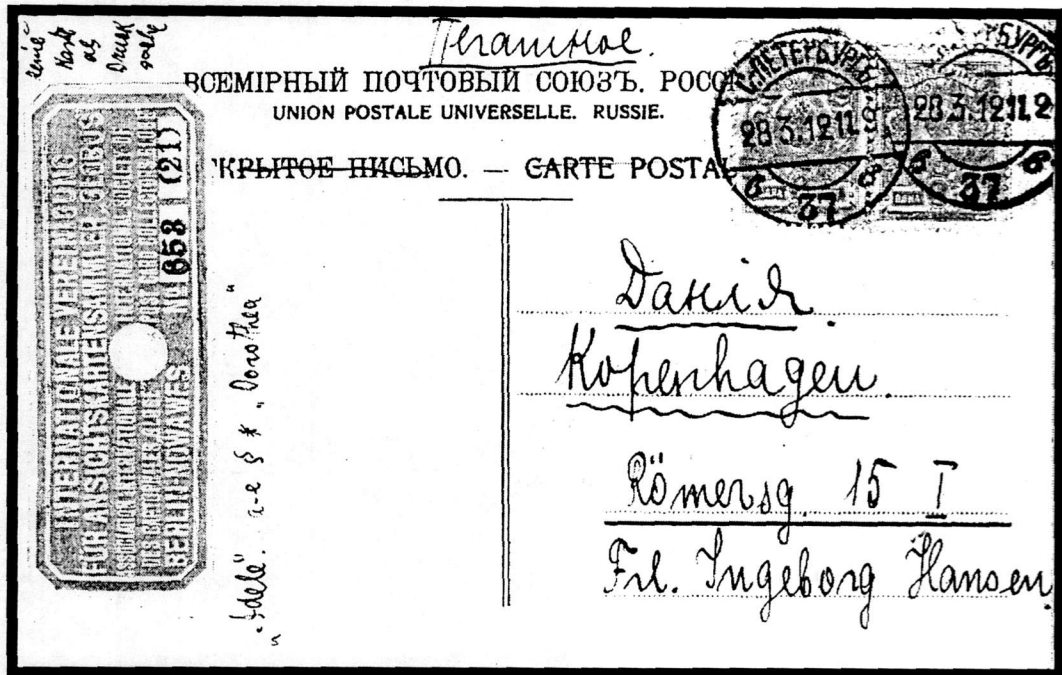 Печатное.
ВСЕМІРНЫЙ ПОЧТОВЫЙ СОЮЗЪ. РОСС
UNION POSTALE UNIVERSELLE. RUSSIE.
КРЫТОЕ ПИСЬМО. — CARTE POSTAL
С.ПЕТЕРБУРГЪ
28 3.12 11
6 37 8
БУРГЪ
28 3.12 11 2
6 37 8
Karte
als
Druck
sache
INTERNATIONALE VEREINIGUNG
FÜR ANSICHTSKARTENSAMMLER „GLOBUS
BERLIN-NOWAWES No 653 (21)
"Adele". a-e § * "Dorothea"
Данія.
Kopenhagen.
Römersg. 15 I
Frl. Ingeborg Hansen.